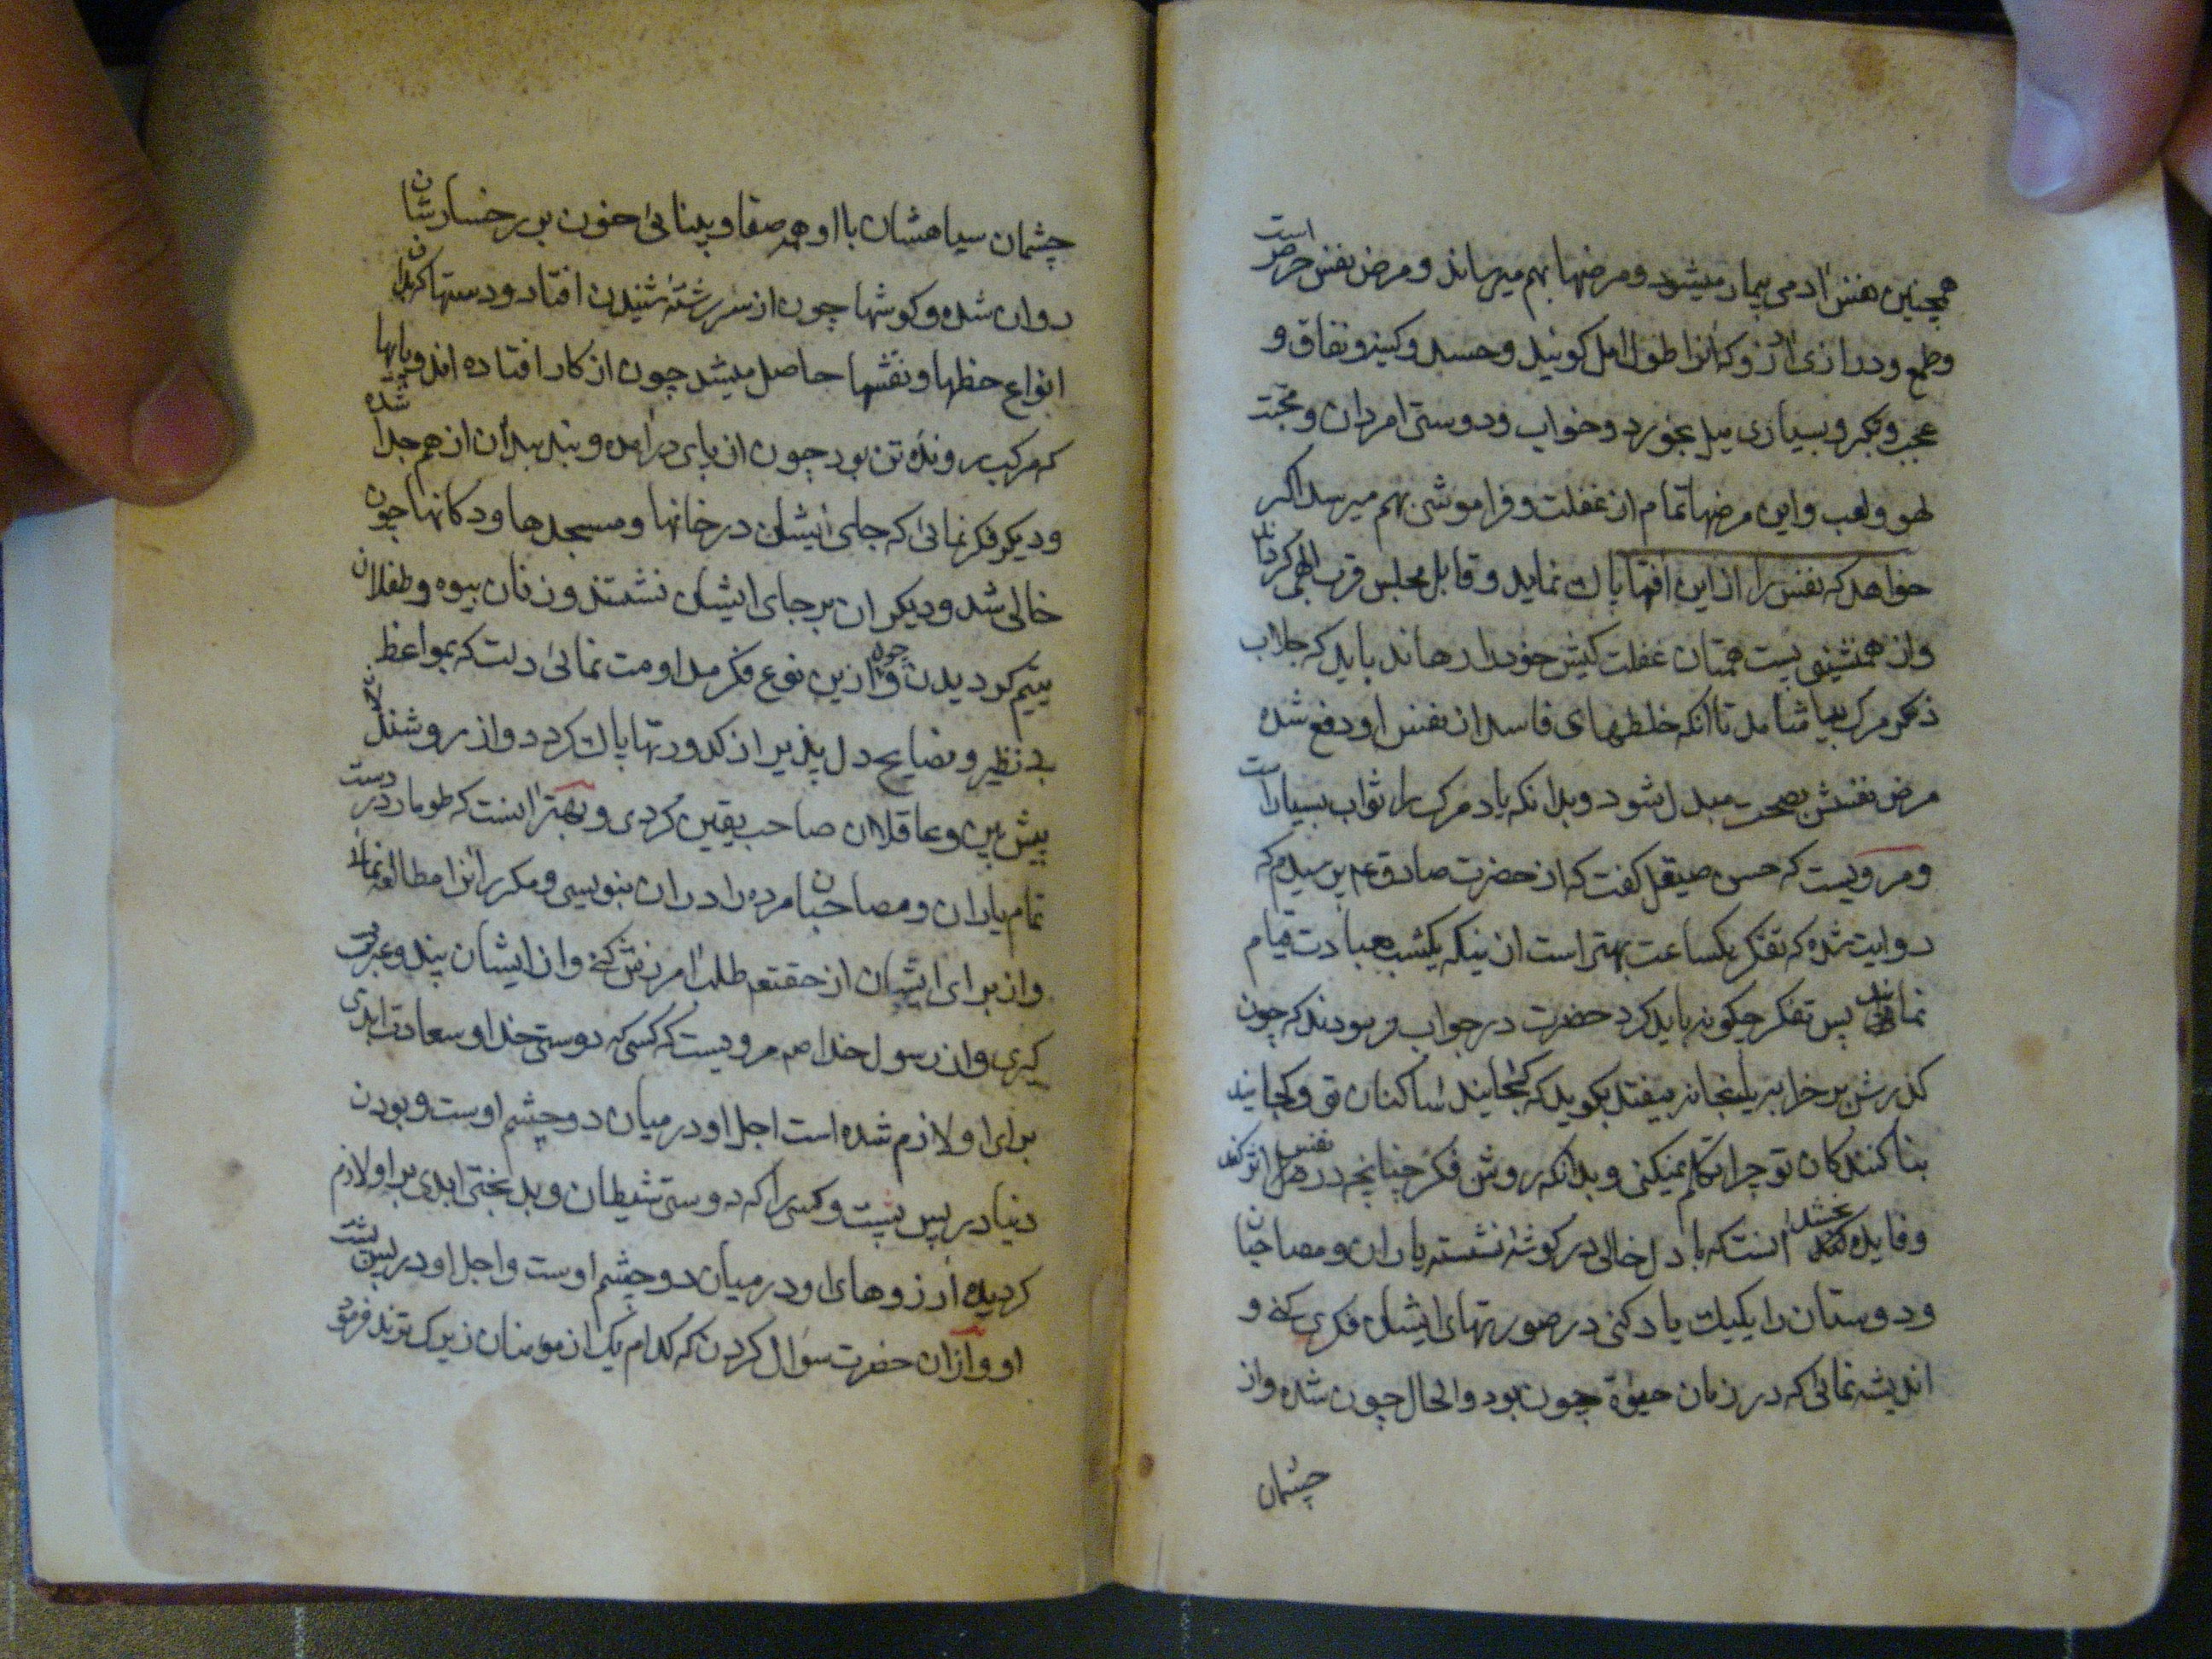 همچنین نفس ادمی بیمار میشود و مرضها بهم میرساند و مرض نفس حرص است
وطمع ودرازی ارزو که انرا طول امل کویند وحسد وکینه ونفاق و
عجب وتکبر وبسیاری میل بخورد وخواب ودوستی امردان ومحبت
لهو ولعب واین مرضها تمام از غفلت وفراموشی بهم میرسد اکر
خواهد که نفس را از این افتها پاک نماید وقابل مجلس قرب الهی کرداند
واز همنشینی پست همتان غفلت کیش خود را رهاند باید که جلاب
ذکر مرک بیاشامد تا انکه خلطهای فاسد از نفس او دفع شده
مرض نفسش بصحت مبدل شود وبدانکه یاد مرک را ثواب بسیار است
ومرویست که حسن صیقل کفت که از حضرت صادق عم پرسیدم که
روایت شده که تفکر یکساعت بهتر است از نیکه یکشب بعبادت قیام
نمایند پس تفکر چکونه باید کرد حضرت در جواب فرمودند که چون
کذرش بر خرابه یا بخانه بیفتد بکوید که کجایند ساکنان تو وکجایند
بنا کنندکان تو چرا تکلم نمیکنی وبدانکه روش فکر چنانچه در نفس اثر کند
وفایده بخشد انست که با دل خالی در کوشهٔ نشسته یاران ومصاحبان
ودوستان را یکیک یاد کنی در صورتهای ایشان فکری کنی و
اندیشه نمائی که در زمان حیوة چون بود والحال چون شده واز
چشمان
چشمان سیاهشان با او همه صفا وبینائی خون بر رخسارشان
روان شده وکوشها چون از سر رشتهٔ شنیدن افتاد ودستها که از ان
انواع حظها ونقشها حاصل میشد چون از کار افتاده اند وپایها
که مرکب روندهٔ تن بود چون از پای درامده وبند بندان از هم جدا شده
ودیکر فکر نمائی که جای ایشان در خانها ومسجدها ودکانها چون
خالی شد ودیکران بر جای ایشان نشستند وزنان بیوه وطفلان
یتیم کردیدن وچون ازین نوع فکر مداومت نمائی دلت که بمواعظ
بی نظیر ونصایح دل پذیر از کدورتها پاک کردد واز روشندلان
پیش بین وعاقلان صاحب یقین کردی وبهتر اینست که طومار درست
تمام یاران ومصاحبان مرده را در ان بنویسی ومکرر انرا مطالعه نمائی
واز برای ایشان از حقتعم طلب امرزش کنی واز ایشان پند وعبرت
کیری واز رسول خدا صم مرویست که کسی که دوستی خدا وسعادت ابدی
برای او لازم شده است اجل او در میان دو چشم اوست وبودن
دنیا در پس پشت وکسی را که دوستی شیطان وبد بختی ابدی بر او لازم
کردیده ارزوهای او در میان دو چشم اوست واجل او در پس پشت
او وازان حضرت سؤال کردن که کدام یک از مؤمنان زیرک ترند فرمود